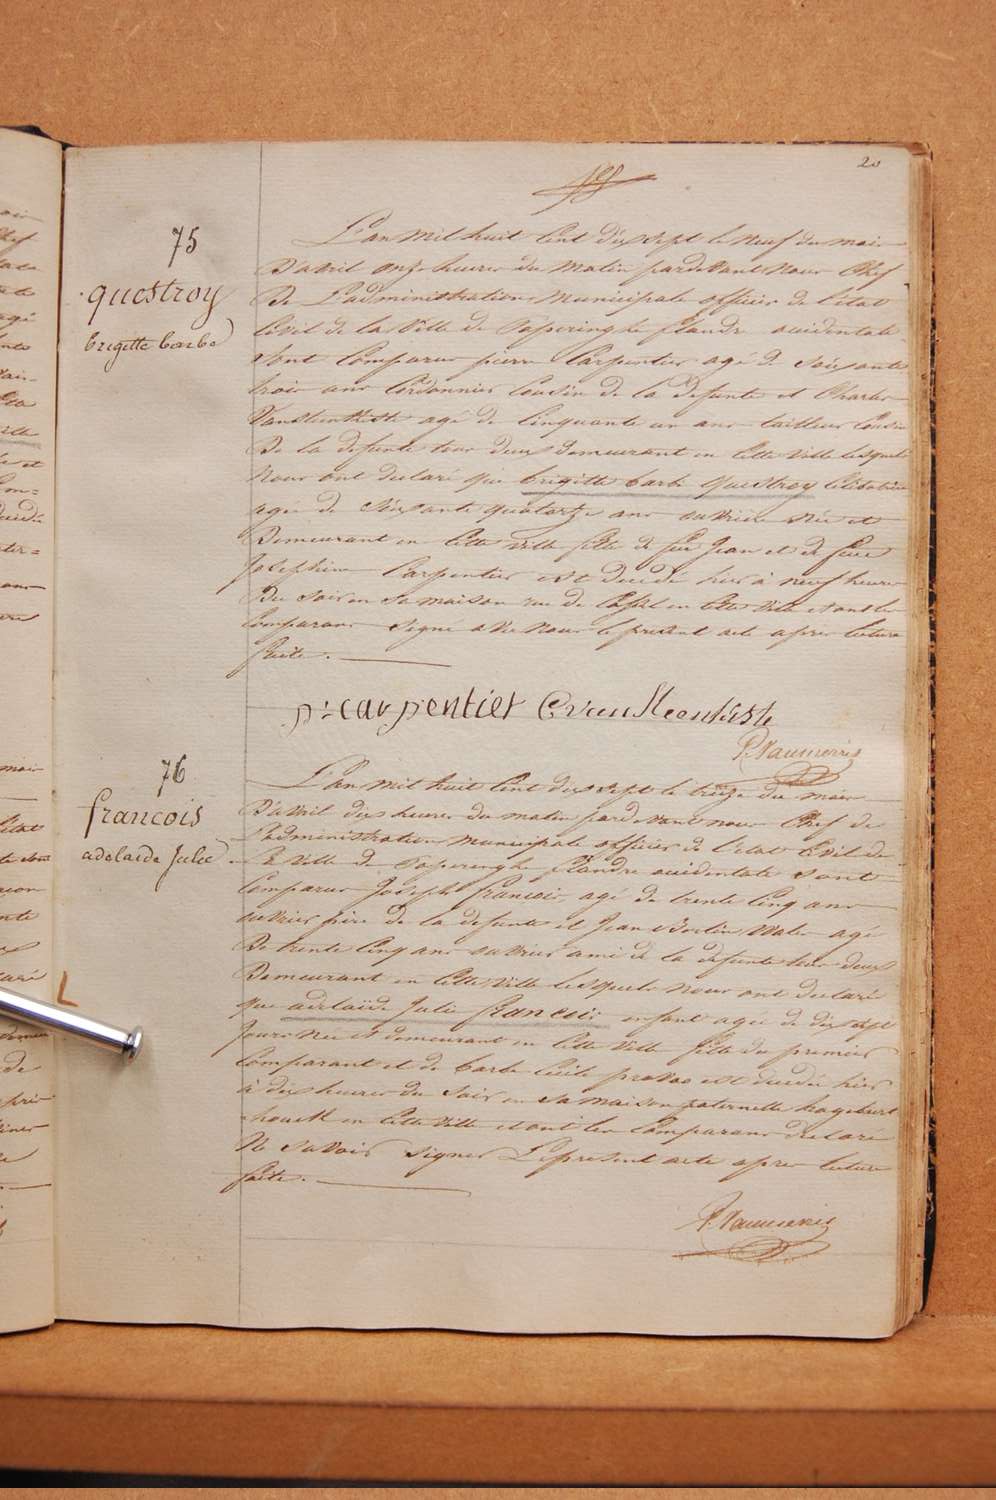 20
75
questroy
brigitte barbe
L'an mil huit cent dix sept le neuf du mois
D'avril onze heures du matin pardevant nous Chef
De L'administration Municipale officier de l'etat
Civil de la Ville de Poperinghe flandre occidentale
Sont Comparus pierre Carpentier agé de Soixante
trois ans Cordonnier Cousin de la Defunte et Charles
agé de Cinquante un ans tailleur Cousin
De la defunte tous deux demeurant en Cette Ville lesquels
Nous ont declaré que brigitte barbe questroy Celibataire
agée de Soixante quatorze ans ouvriere Née et
Demeurant en Cette Ville fille de feu Jean et de feue
Josephine Carpentier est decedée hier à neuf heures
Du Soir en Sa maison rue de Cassel en Cette Ville et ont les
Comparans Signé avec Nous le present acte apres lecture
faite.
p: carpentier
76
francois
adelaide Julie
L'an mil huit Cent dix sept le treize du mois
D'avril dix heures du matin pardevant nous Chef de
L'administration Municipale officier de l'etat Civil de
la Ville de Poperinghe flandre occidentale Sont
Comparus Joseph francois, agé de trente Cinq ans
ouvrier pere de la defunte et Jean agé
De trente Cinq ans ouvrier ami de la defunte tous deux
Demeurant en Cette Ville lesquels Nous ont declaré
que adelaïde Julie francois enfant agée de dix sept
Jours Née et demeurant en Cette Ville fille du premier
Comparant et de barbe est decedée hier
à dix heures du Soir en Sa maison paternelle
en Cette Ville et ont les Comparans declaré
Ne Savoir Signer Le present acte apres lecture
faite.